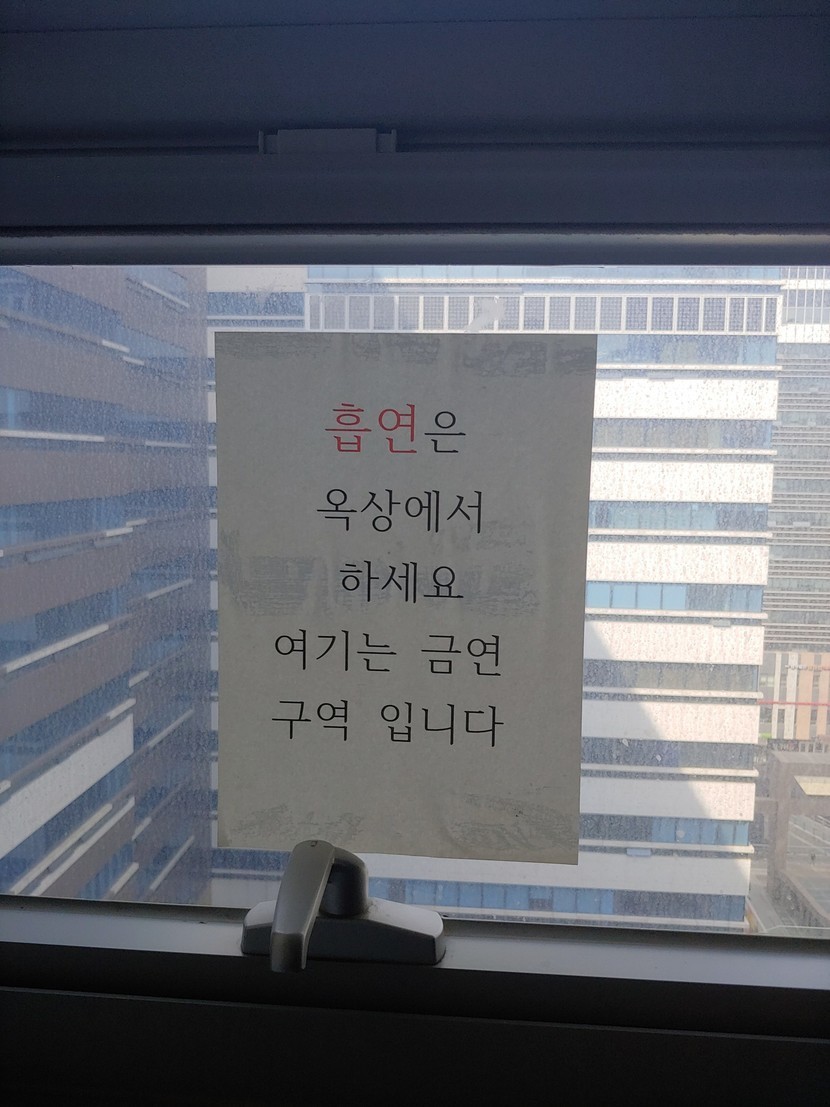 흡연은
옥상에서
하세요
여기는 금연
구역 입니다